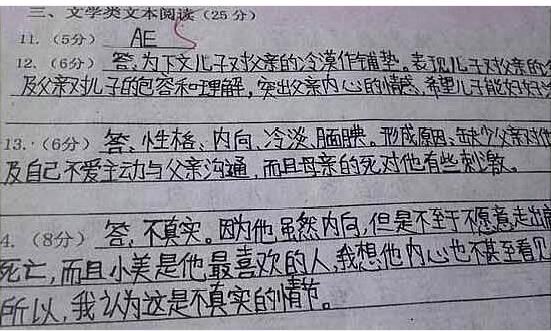 三、文学类文本阅读（25分）
11.（5分） AE
12.（6分） 答、为下文儿子对父亲的冷漠作铺垫。表现儿子对父亲的
及父亲对儿子的包容和理解，突出父亲内心的情感，希望儿子能好好
13.（6分） 答、性格、内向、冷淡、腼腆。形成原因、缺少父亲对他
及自己不爱主动与父亲沟通，而且母亲的死对他有些刺激。
4.（8分） 答，不真实。因为他虽然内向，但是不至于不愿意走出
死亡，而且小美是他最喜欢的人，我想他内心也不甚至看见
所以，我认为这是不真实的情节。